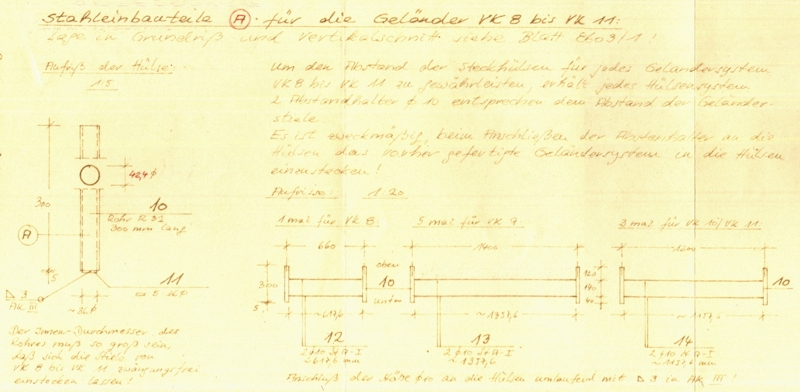 Stahleinbauteile A für die Geländer VK 8 bis VK 11:
Lage in Grundriß und Vertikalschnitt siehe Blatt 8603/1!
Aufriß der Hülse:
1:5
Um den Abstand der Steckhülsen für jedes Geländersystem
VK 8 bis VK 11 zu gewährleisten, erhält jedes Hülsensystem
2 Abstandhalter ϕ 10 entsprechen dem Abstand der Geländer-
stiele.
Es ist zweckmäßig, beim Anschließen der Abstanhalter an die
Hülsen das vorher gefertigte Geländersystem in die Hülsen
einenstecken!
Aufrisse: 1:20
1 mal für VK 8
5 mal für VK 9
3 mal für VK 10/VK 11
42,4 ϕ
300
10
Rohr
300 mm lang
A
5
11
3
AK III
660
oben
unten
10
300
5
12
2 ϕ 10 St A-I
13
2 ϕ 10 St A-I
14
2 ϕ 10 St A-I
120
140
10
Der Innen-Durchmesser des
Rohres muß so groß sein,
daß sich die Stiele von
VK 8 bis VK 11 zwängungsfrei
einstecken lassen!
Anschluß der Stäbe ϕ 10 an die Hülsen umlaufend mit 3 in AK III!